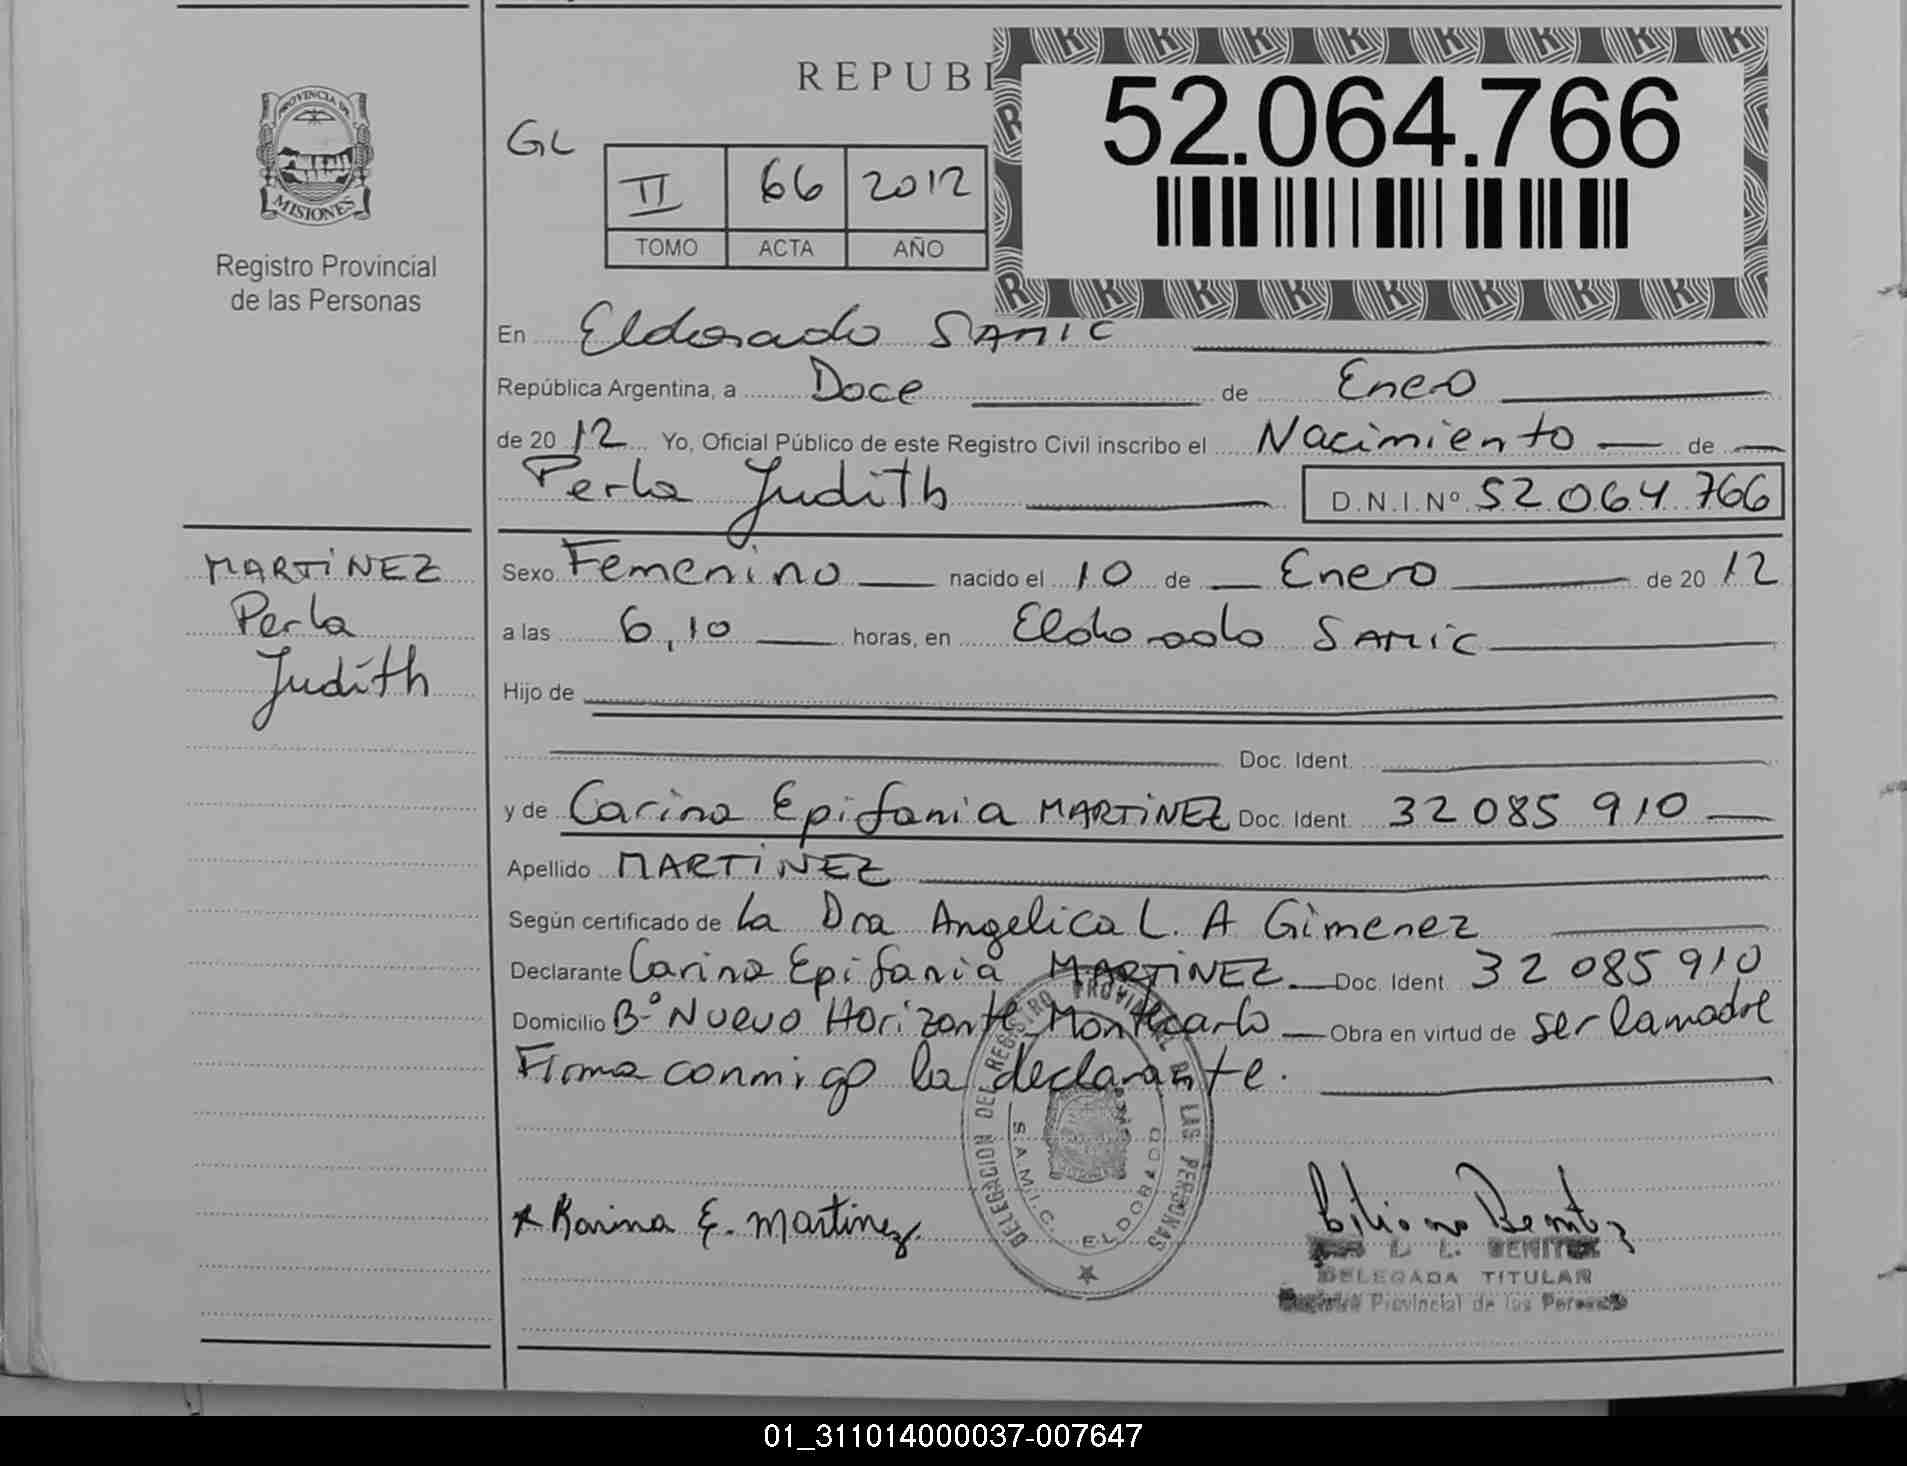 REPUBI
52.064.766
PROVINCIA DE
MISIONES
Registro Provincial
de las Personas
GL
II 66 2012
TOMO ACTA AÑO
En Eldorado SAMIC
República Argentina, a Doce de Enero
de 2012 Yo, Oficial Público de este Registro Civil inscribo el Nacimiento de
Perla Judith D.N.I.Nº 52 064 766
MARTíNEZ
Perla
Judith
Sexo Femenino nacido el 10 de Enero de 2012
a las 6,10 horas, en Eldorado SAMIC
Hijo de
Doc. Ident.
y de Carina Epifania MARTíNEZ Doc. Ident. 32 085 910
Apellido MARTíNEZ
Según certificado de la Dra Angelica L. A Gimenez
Declarante Carina Epifania MARTíNEZ Doc. Ident. 32 085 910
Domicilio Bº Nuevo Horizonte Montecarlo Obra en virtud de ser la madre
Firma conmigo la declarante.
DELEGACION DEL REGISTRO PROVINCIAL DE LAS PERSONAS
S.A.M.I.C. ELDORADO
Karina E. Martinez
Liliana Benitez
L. BENITEZ
DELEGADA TITULAR
Registro Provincial de las Personas
01_311014000037-007647